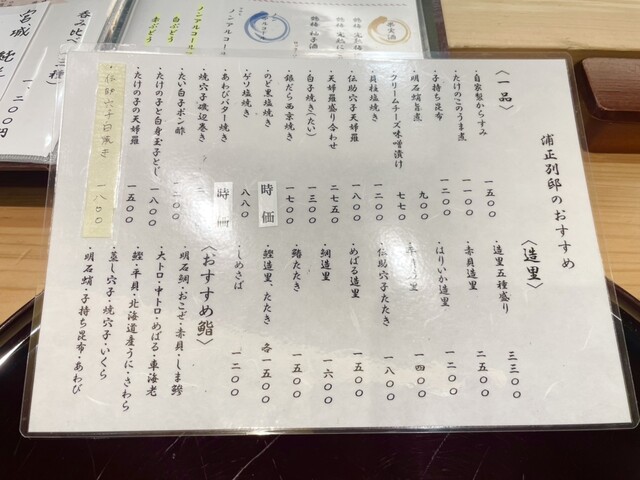 浦正別邸のおすすめ
〈一品〉
・自家製からすみ 一五〇〇
・たけのこのうま煮 一一〇〇
・子持ち昆布 一二〇〇
・明石蛸旨煮 九〇〇
・クリームチーズ味噌漬け 七七〇
・貝柱塩焼き 一二〇〇
・伝助穴子天婦羅 一八〇〇
・天婦羅盛り合わせ 二七五〇
・白子焼き(たい) 一三〇〇
・銀だら西京焼き 一七〇〇
・のど黒塩焼き 時価
・ゲソ塩焼き 八八〇
・あわびバター焼き 時価
・焼穴子磯辺巻き
・たい白子ポン酢 一二〇〇
・たけの子と白身玉子とじ 一八〇〇
・たけの子の天婦羅 一五〇〇
・伝助穴子白焼き 一八〇〇
〈造里〉
・造里五種盛り 三三〇〇
・赤貝造里 二五〇〇
・はりいか造里 一二〇〇
造里 一四〇〇
・伝助穴子たたき 一八〇〇
・めばる造里 一五〇〇
・鯛造里 一六〇〇
・鮪たたき 一五〇〇
・鰹造里、たたき 各一五〇〇
・しめさば 一二〇〇
〈おすすめ鮨〉
・明石鯛・おこぜ・赤貝・しま鯵
・大トロ・中トロ・めばる・車海老
・鰹・平貝・北海道産うに・さわら
・蒸し穴子・焼穴子・いくら
・明石蛸・子持ち昆布・あわび
呑み比べ(三種)
宮城
一、二〇〇円
果実酒
ノンアルコール
ノンアルコール
白ぶどう
赤ぶどう